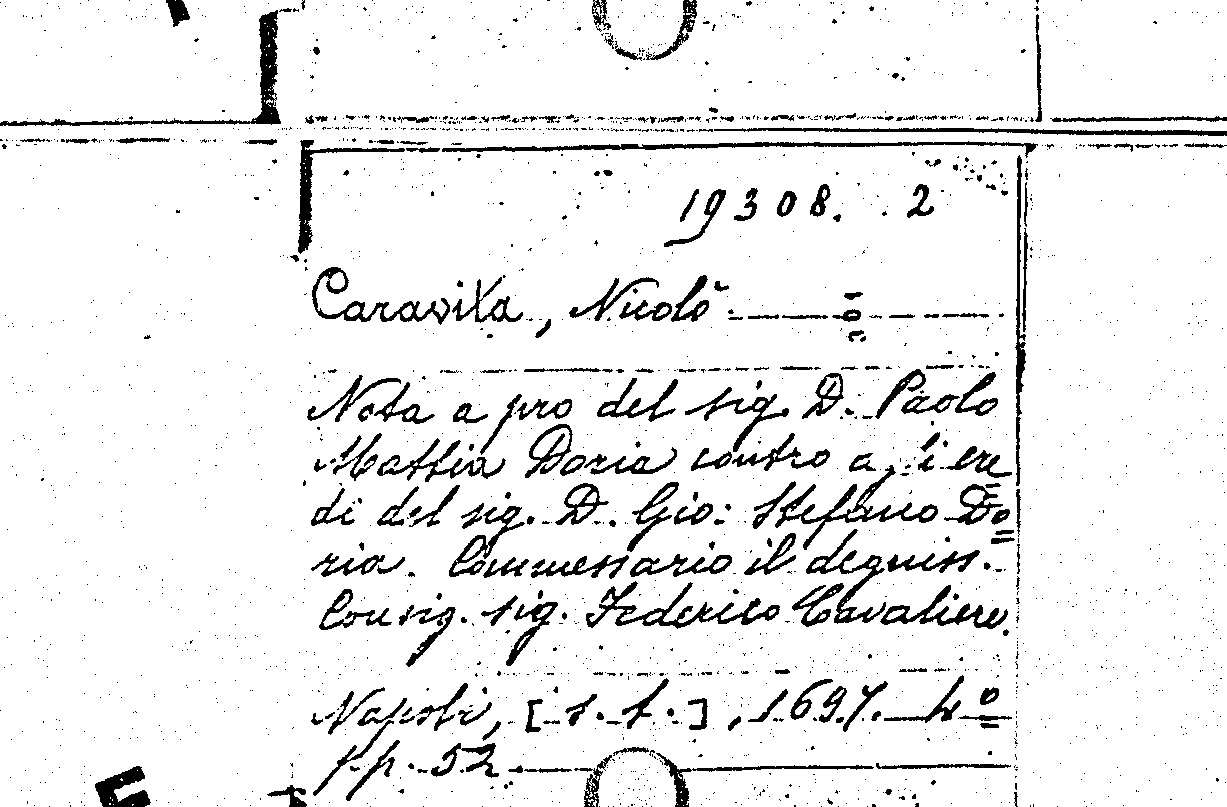 19308. 2
Caravita, Nicolò
Nota a pro del sig. D. Paolo
Mattia Doria contro agli ere
di del sig. D. Gio: Stefano Do
ria. Commessario il degniss.
Consig. sig. Federico Cavaliere.
Napoli, [s. t.], 1697. 4º
pp. 52.